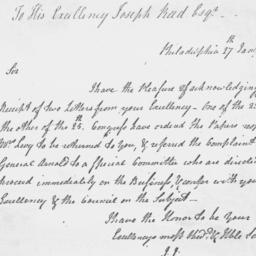 To His Excellency Joseph Reed Esqr.
Philadelphia 27th Jan
Sir
I have the Pleasure of acknowledging
Receipt of two Letters from your Excellency. One of the 2
the other of the 25. Congress have ordered the Papers resp
Mr Levy to be returned to you, & referred the Complaint
General Arnold to a special Committee who are directed
proceed immediately on the Business, & confer with your
Excellency & the Council on the Subject.
I have the Honor to be your
Excellency's most Obedt. & Hble Se
J. J.